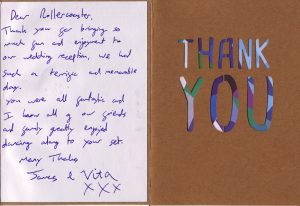 Dear Rollercoaster,
Thank you for bringing so
much fun and enjoyment to
our wedding reception, we had
such a terrific and memorable
day.
You were all fantastic and
I know all of our friends
and family greatly enjoyed
dancing along to your set.
Many Thanks
James & Vita
xxx
THANK
YOU